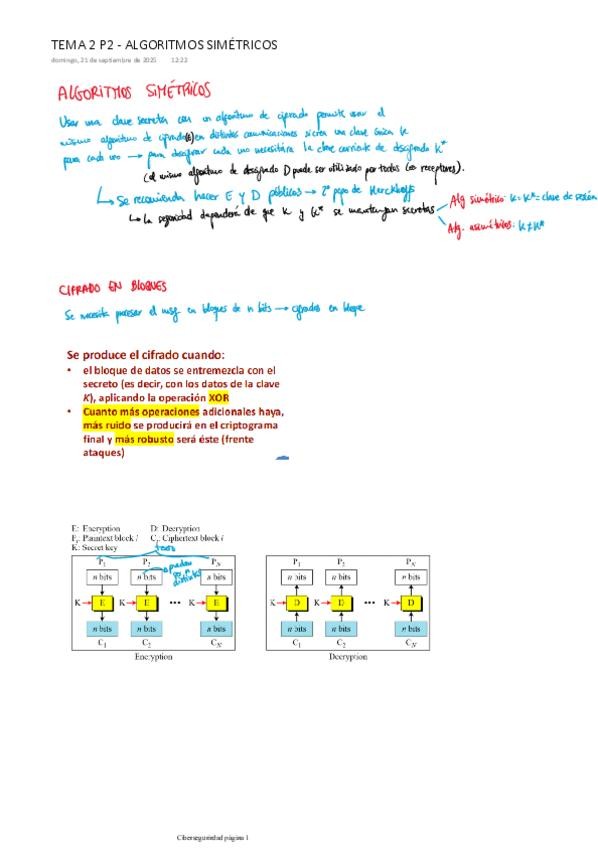 TEMA 2 P2 - ALGORITMOS SIMÉTRICOS
domingo, 21 de septiembre de 2025 12:22
ALGORITMOS SIMÉTRICOS
Usar una clave secreta con un algoritmo de cifrado permite usar el
mismo algoritmo de cifrado(E) en distintas comunicaciones si crea una clave única K
para cada uno → para descifrar cada uno necesitará la clave de descifrado K*
(el mismo algoritmo de descifrado D puede ser utilizado por todos los receptores).
Se recomienda hacer E y D públicos → 2º de Kerckhoffs
La seguridad dependerá de que K y K* se mantengan secretas
Alg simétrico: K=K*=clave de sesión
Alg. asimétricos: K≠K*
CIFRADO EN BLOQUES
Se necesita procesar el msg en bloques de n bits → cifrados en bloque
Se produce el cifrado cuando:
• el bloque de datos se entremezcla con el
secreto (es decir, con los datos de la clave
K), aplicando la operación XOR
• Cuanto más operaciones adicionales haya,
más ruido se producirá en el criptograma
final y más robusto será éste (frente
ataques)
E: Encryption D: Decryption
Pi: Plaintext block i Ci: Ciphertext block i
K: Secret key
texto
P1 P2 PN
n bits n bits n bits
pueden ser distintas
K E K E ••• K E
n bits n bits n bits
C1 C2 CN
Encryption
P1 P2 PN
n bits n bits n bits
K D K D ••• K D
n bits n bits n bits
C1 C2 CN
Decryption
Ciberseguridad página 1